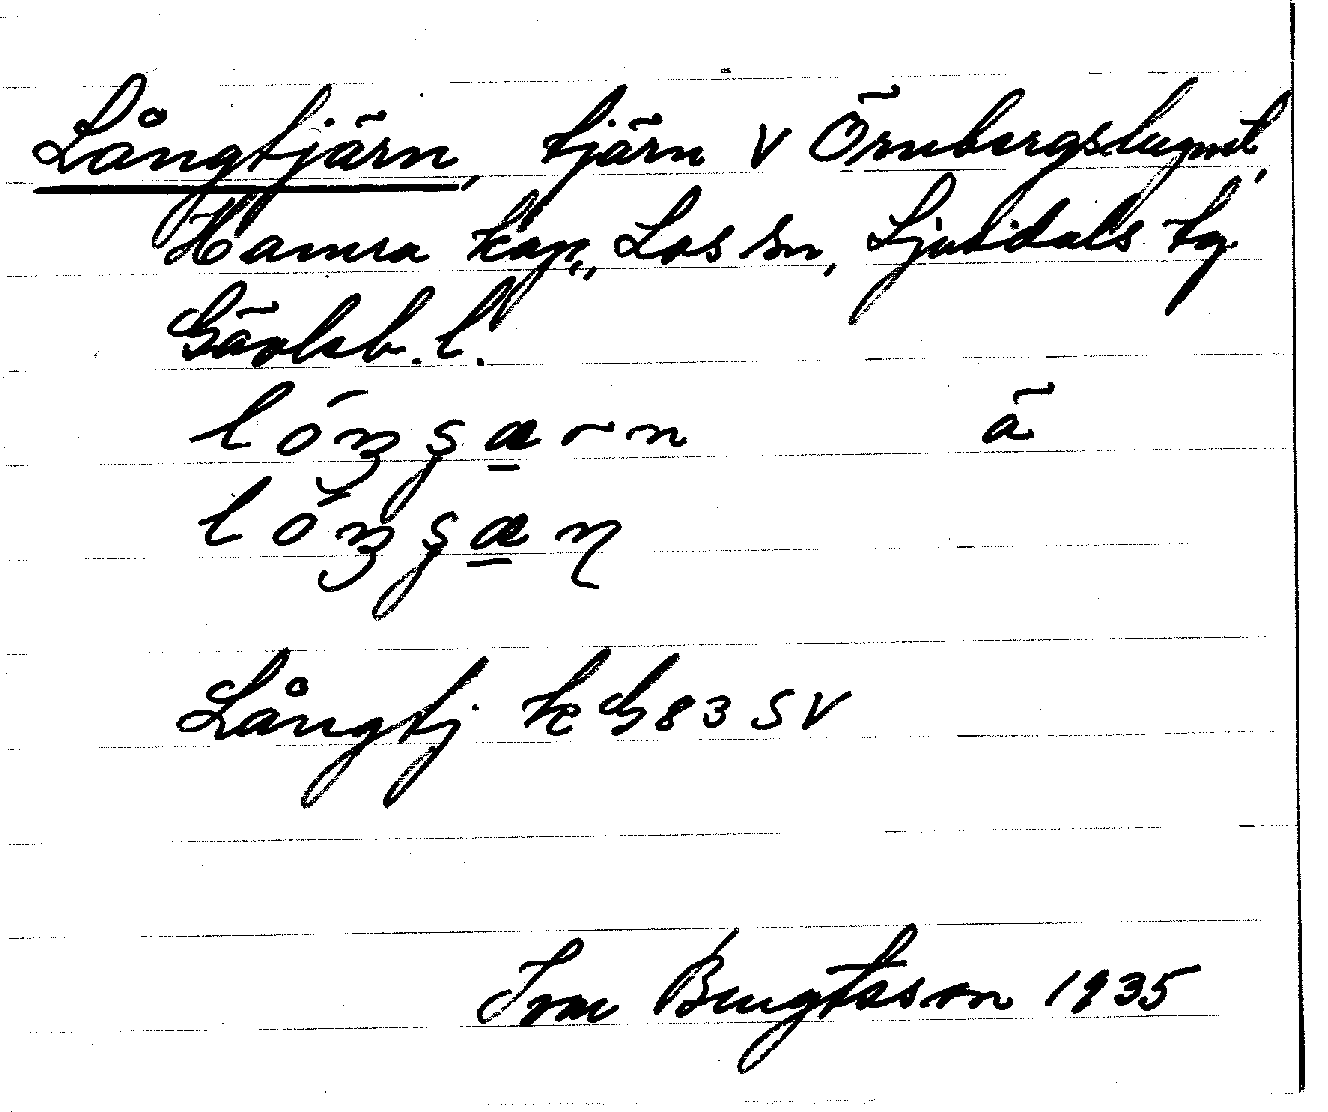 Långtjärn, tjärn V Örnbergstugmt,
Hamra kap., Los sn, Ljusdals tg
Gävleb. l.
lóŋgærn ä
lóŋgæɳ
Långtj k G 83 SV
Ivar Bengtsson 1935